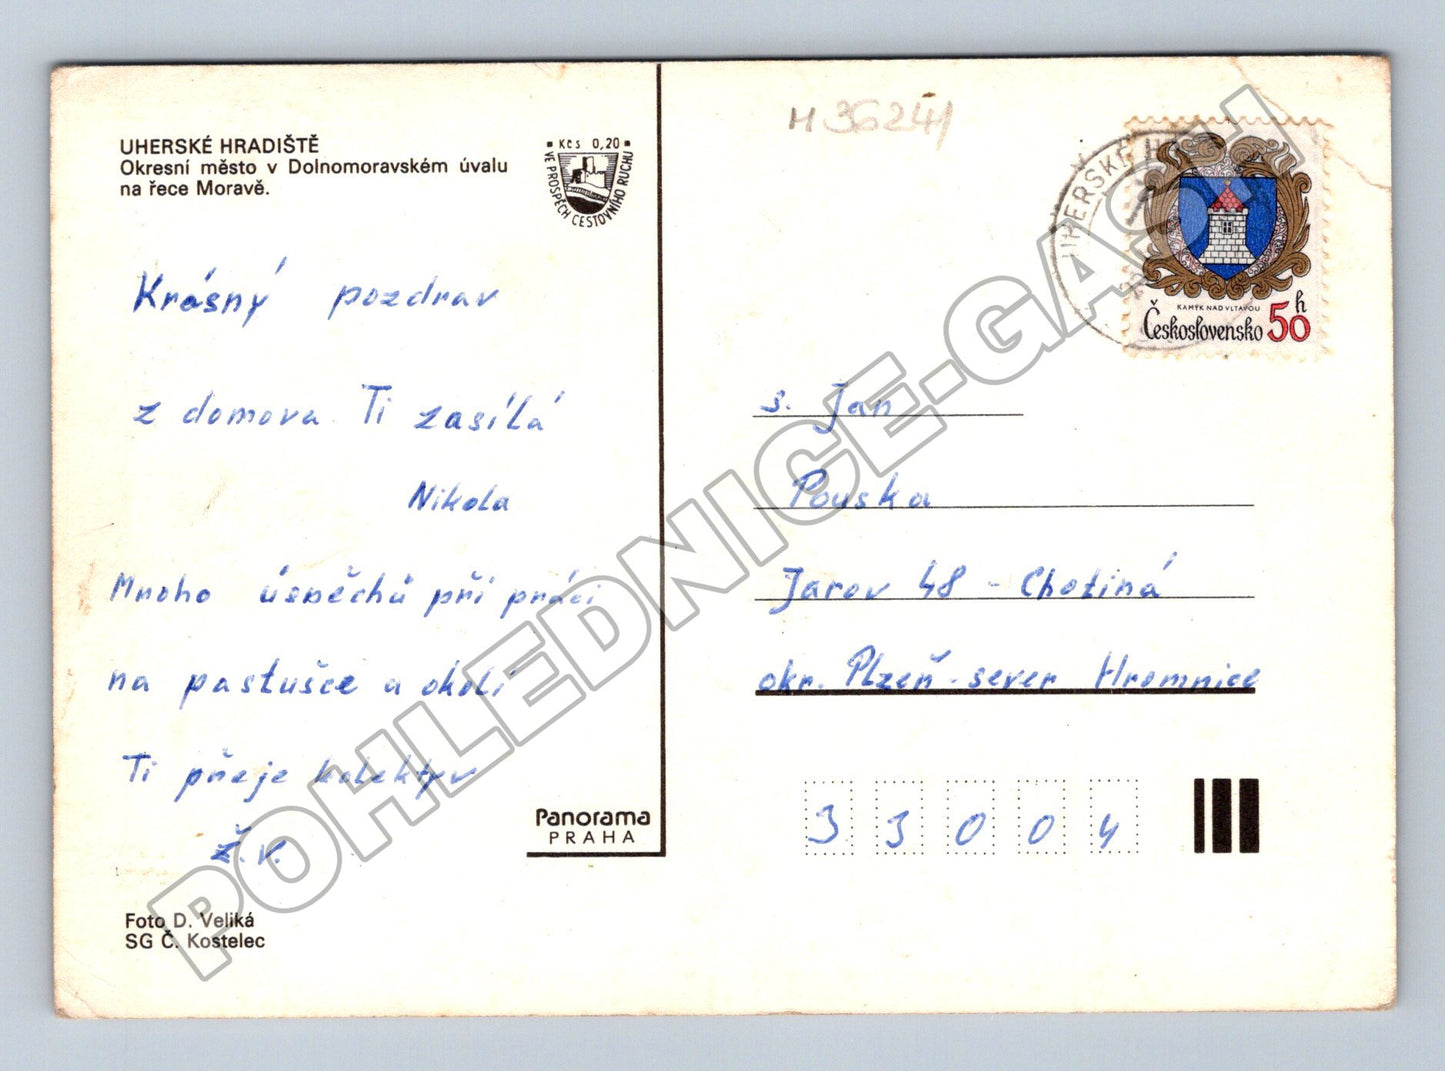 UHERSKÉ HRADIŠTĚ
Okresní město v Dolnomoravském úvalu
na řece Moravě.
Kčs 0,20
VE PROSPĚCH CESTOVNÍHO RUCHU
H 36241
UHERSKÉ H
KAMÝK NAD VLTAVOU
Československo 50 h
Krásný pozdrav
z domova Ti zasílá
Nikola
Mnoho úspěchů při práci
na pastušce a okolí
Ti přeje kolektyv
Ž.V.
s. Jan
Pouska
Jarov 48 - Chotiná
okr. Plzeň - sever Hromnice
33004
Panorama
PRAHA
Foto D. Veliká
SG Č. Kostelec
POHLEDNICE-GASH